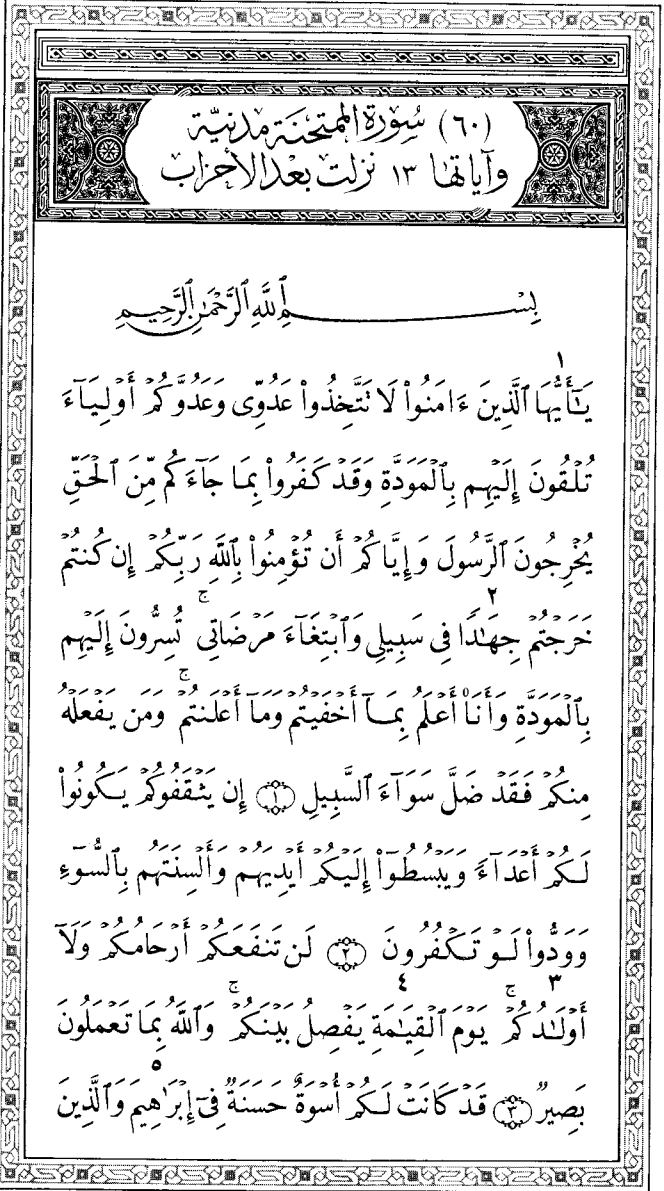 (٦٠) سُورَة الممتَحنَة مَدنيَّة
وَآيَاتهَا ١٣ نزلَت بَعْدَ الأحزاب
بِسْمِ ٱللَّهِ ٱلرَّحْمَٰنِ ٱلرَّحِيمِ
١
يَٰٓأَيُّهَا ٱلَّذِينَ ءَامَنُوا۟ لَا تَتَّخِذُوا۟ عَدُوِّى وَعَدُوَّكُمْ أَوْلِيَآءَ
تُلْقُونَ إِلَيْهِم بِٱلْمَوَدَّةِ وَقَدْ كَفَرُوا۟ بِمَا جَآءَكُم مِّنَ ٱلْحَقِّ
يُخْرِجُونَ ٱلرَّسُولَ وَإِيَّاكُمْ أَن تُؤْمِنُوا۟ بِٱللَّهِ رَبِّكُمْ إِن كُنتُمْ
٢
خَرَجْتُمْ جِهَٰدًا فِى سَبِيلِى وَٱبْتِغَآءَ مَرْضَاتِى ۚ تُسِرُّونَ إِلَيْهِم
بِٱلْمَوَدَّةِ وَأَنَا۠ أَعْلَمُ بِمَآ أَخْفَيْتُمْ وَمَآ أَعْلَنتُمْ ۚ وَمَن يَفْعَلْهُ
مِنكُمْ فَقَدْ ضَلَّ سَوَآءَ ٱلسَّبِيلِ ﴿١﴾ إِن يَثْقَفُوكُمْ يَكُونُوا۟
لَكُمْ أَعْدَآءً وَيَبْسُطُوٓا۟ إِلَيْكُمْ أَيْدِيَهُمْ وَأَلْسِنَتَهُم بِٱلسُّوٓءِ
وَوَدُّوا۟ لَوْ تَكْفُرُونَ ﴿٢﴾ لَن تَنفَعَكُمْ أَرْحَامُكُمْ وَلَآ
٣ ٤
أَوْلَٰدُكُمْ ۚ يَوْمَ ٱلْقِيَٰمَةِ يَفْصِلُ بَيْنَكُمْ ۚ وَٱللَّهُ بِمَا تَعْمَلُونَ
٥
بَصِيرٌ ﴿٣﴾ قَدْ كَانَتْ لَكُمْ أُسْوَةٌ حَسَنَةٌ فِىٓ إِبْرَٰهِيمَ وَٱلَّذِينَ